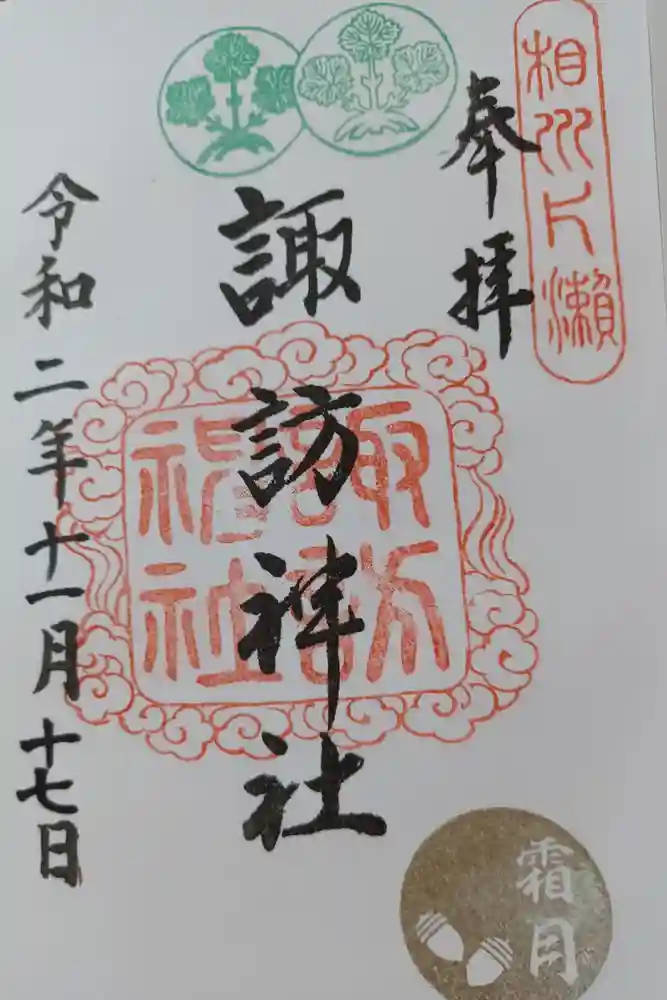 相州片瀬
奉拝
諏訪神社
諏訪
神社
令和二年十一月十七日
霜月